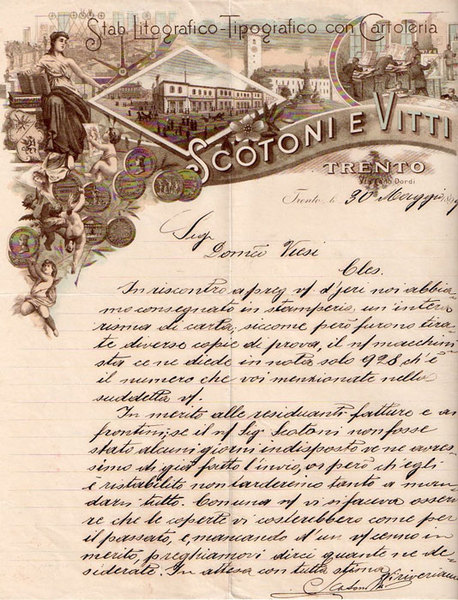 Stab. Litografico-Tipografico con Cartoleria
SCOTONI E VITTI
TRENTO
Via Dordi
Trento, li 30 Maggio
Sig.
Domco Viesi
Cles.
In riscontro a preg. vs. d'jeri noi abbia-
mo consegnato in stamperia un'intera
risma di carta, siccome però furono tira-
te diverse copie di prova, il ns. macchini-
sta ce ne diede in nota solo 928 ch'è
il numero che voi menzionate nella
suddetta vs.
In merito alle residuanti fatture e
frontini, se il ns. Sig. Scotoni non fosse
stato alcuni giorni indisposto ve ne avres-
simo di già fatto l'invio, or però ch'egli
è ristabilito non tarderemo tanto a man-
darvi tutto. Con una ns. vi si faceva osserva-
re che le coperte vi costerebbero come per
il passato, e mancando d'un vs. cenno in
merito, preghiamovi dirci quante ne de-
siderate. In attesa con tutta stima